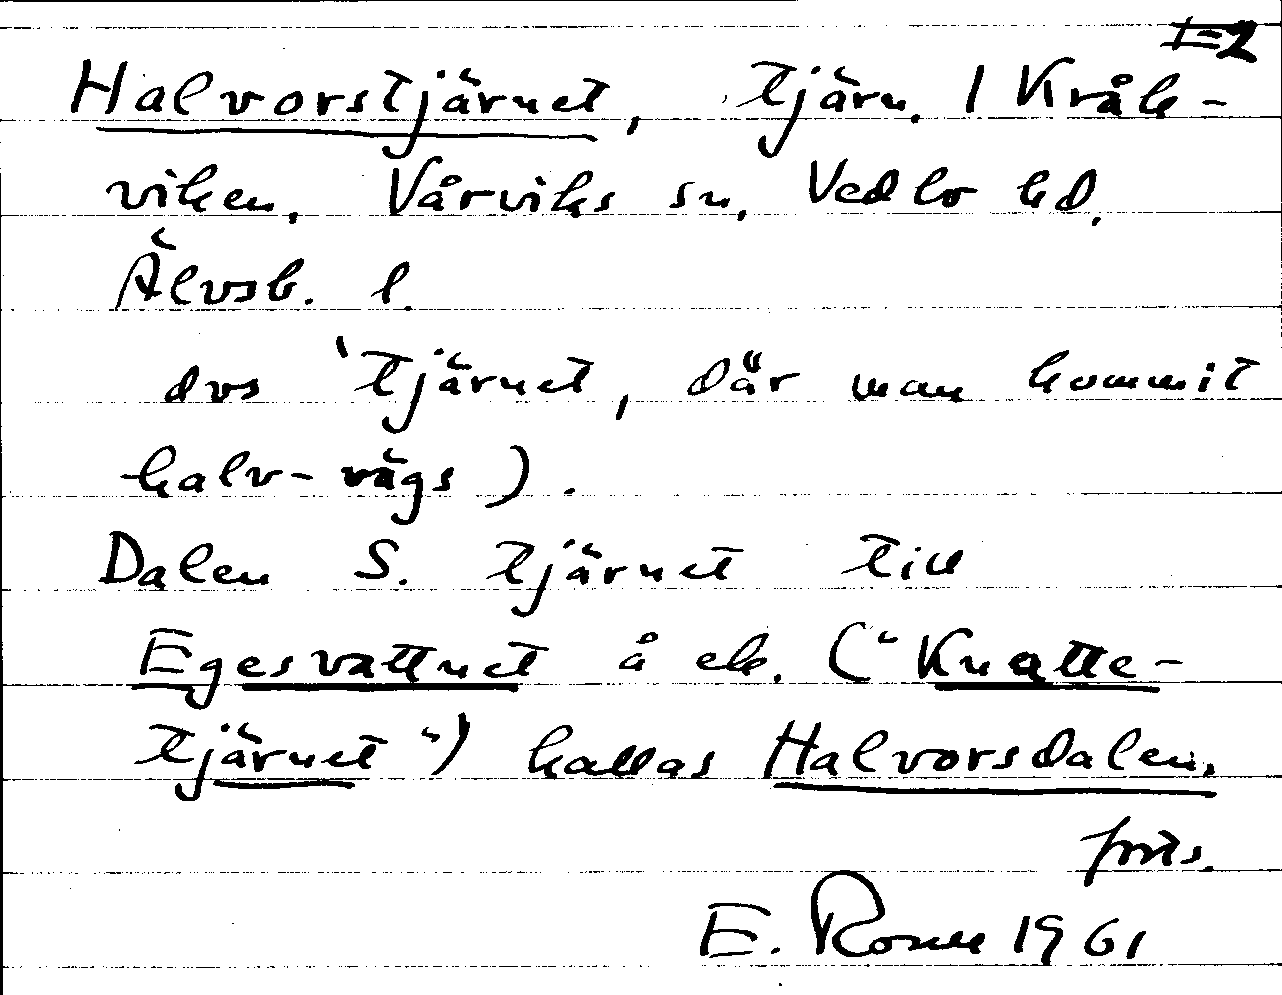 1-2
Halvorstjärnet, tjärn. 1 Kråk-
viken, Vårviks sn, Vedbo hd.
Älvsb. l.
dvs 'tjärnet, där man kommit
halv-vägs).
Dalen S. tjärnet till
Egesvattnet å ek. ("Knatte-
tjärnet") kallas Halvorsdalen.
forts.
E. 1961